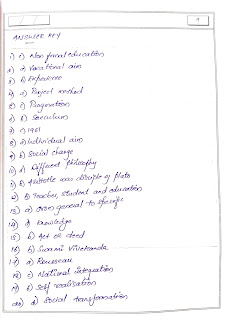 9
ANSWER KEY
1) c) Non formal education
2) a) Vocational aim
3) b) Experience
4) a) Project method
5) c) Pragmatism
6) b) Saeculum
7) c) 1961
8) a) Individual aim
9) b) Social change
10) d) Different philosophy
11) b) Aristotle was disciple of Plato
12) b) Teacher, student and education
13) a) From general to specific
14) d) Knowledge
15) b) Act or deed
16) b) Swami Vivekananda
17) a) Rousseau
18) c) National integration
19) b) Self realisation
20) d) Social transformation